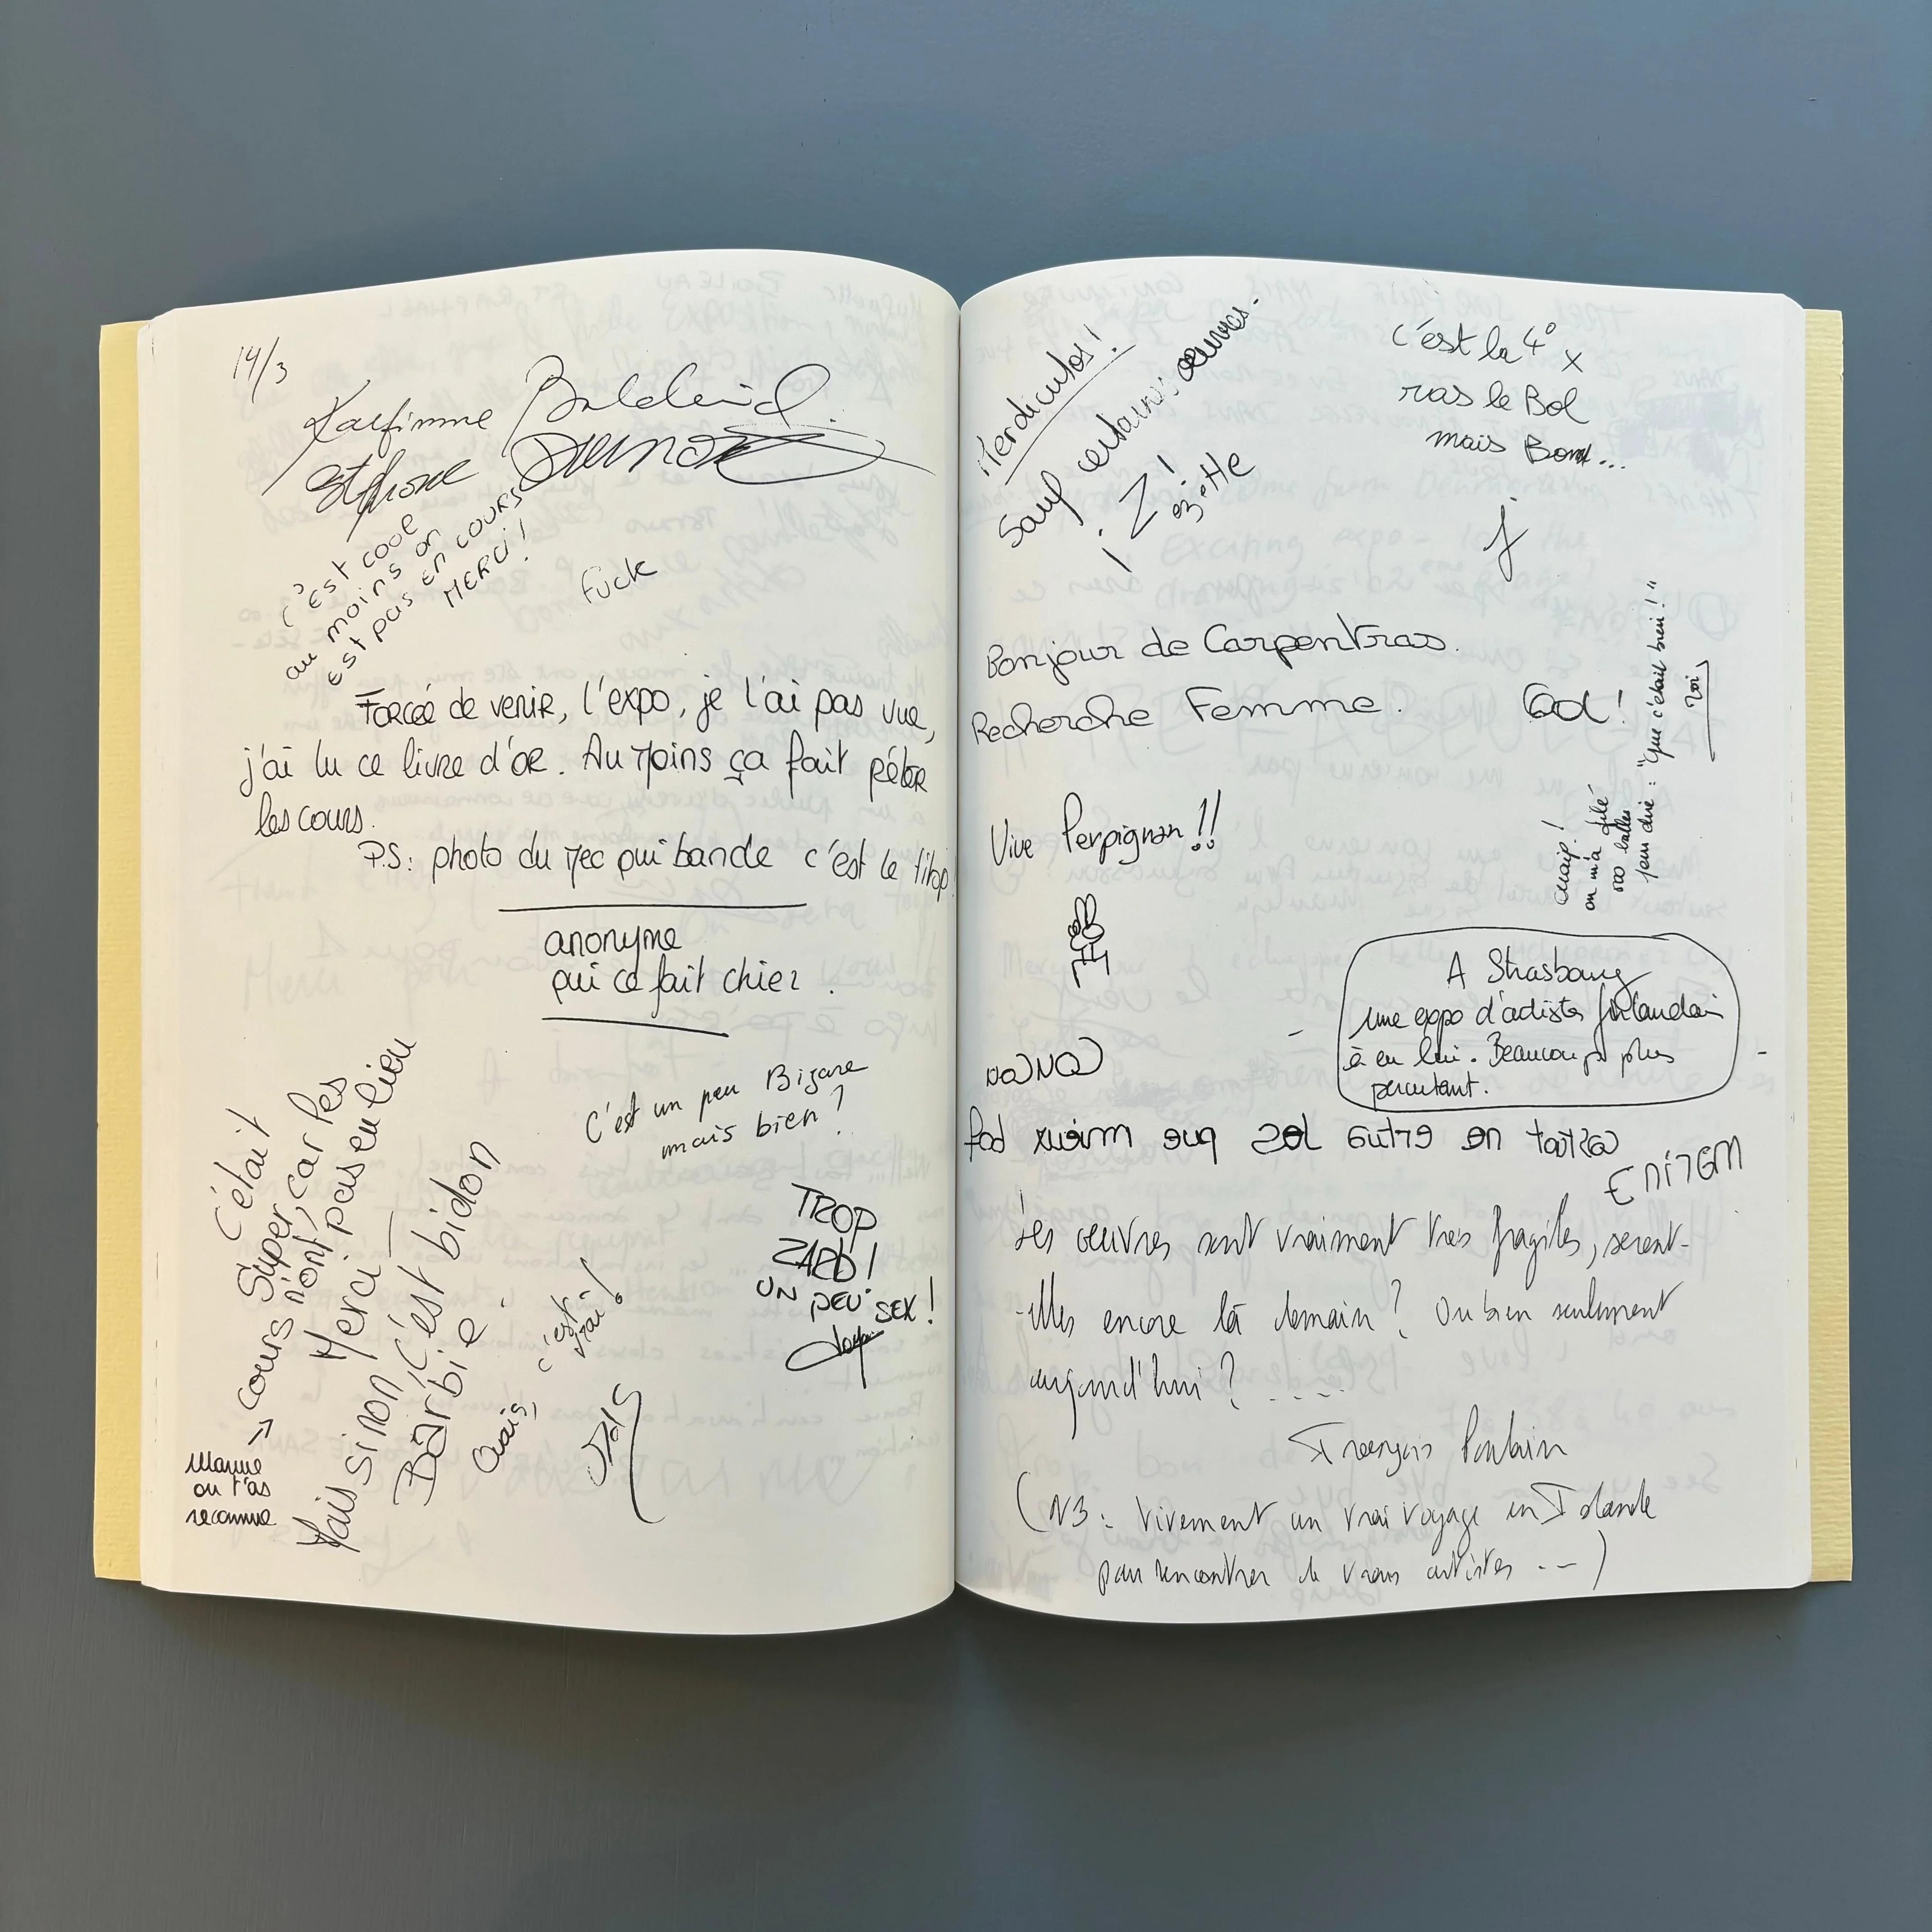 14/3
c'est cool
au moins on
est pas en cours
MERCi!
Fuck
Forcée de venir, l'expo, je l'ai pas vue,
j'ai lu ce livre d'or. Au moins ça fait péter
les cours.
P.S: photo du mec qui bande c'est le titop!
anonyme
qui ce fait chier.
C'était
Super, car les
cours n'ont pas eu lieu
Merci —
Mais sinon c'est bidon
Barbie.
→
ou t'as
reconnue
Ouais, c'est vrai!
C'est un peu Bizare
mais bien?
TROP
ZARB!
UN PEU SEX!
Merdicutos!
Sauf certaines oeuvres.
¡ Z!
ezette
c'est la 4° x
ras le Bol
mais Bon...
j
Bonjour de Carpentras.
Recherche Femme.
God!
Vive Perpignan!!
ouaip!
on m'a filé
500 balles
pour dire: "que c'était bien!"
A Strasbourg
une expo d'artistes finlandais
à eu lui. Beaucoup plus
percutant.
Les oeuvres sont vraiment très fragiles, seront-
-elles encore là demain? Ou bien seulement
aujourd'hui? ....
François
(NB: Vivement un vrai voyage en Islande
pour rencontrer de vrais artistes --)